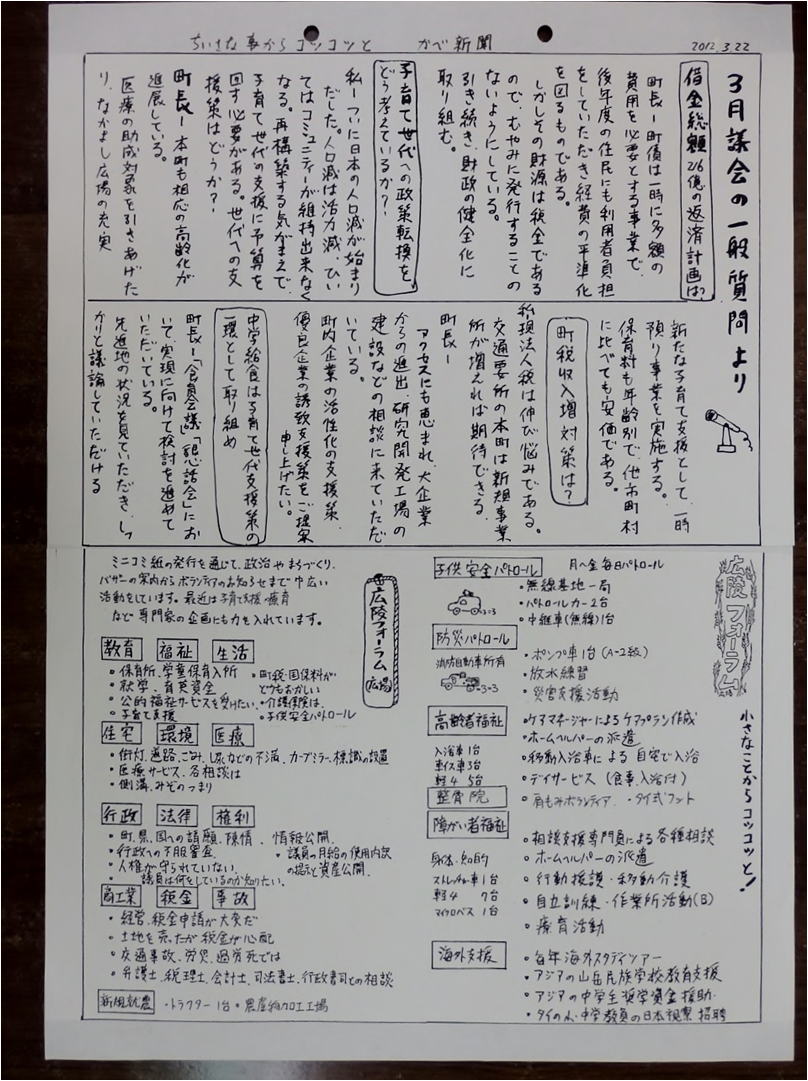 ちいさな事からコツコツと　かべ新聞　2012.3.22
3月議会の一般質問より
借金総額216億の返済計画は?
町長ー町債は一時に多額の
費用を必要とする事業で、
後年度の住民にも利用者負担
をしていただき経費の平準化
を図るものである。
しかしその財源は税金である
ので、むやみに発行することの
ないようにしている。
引き続き、財政の健全化に
取り組む。
子育て世代への政策転換を、
どう考えているか?
私ーついに日本の人口減が始まり
だした。人口減は活力減、ひい
てはコミュニティーが維持出来なく
なる。再構築する気がまえで、
子育て世代の支援に予算を
回す必要がある。世代への支
援策はどうか?
町長ー本町も相応の高齢化が
進展している。
医療の助成対象を引きあげた
り、なかよし広場の充実
新たな子育て支援として、一時
預り事業を実施する。
保育料も年齢別で、他市町村
に比べても安価である。
町税収入増対策は?
私ー現法人税は伸び悩みである。
交通要所の本町は新規事業
所が増えれば期待できる。
町長ー
アクセスにも恵まれ、大企業
からの進出、研究開発工場の
建設などの相談に来ていただ
いている。
町内企業の活性化の支援策、
優良企業の誘致支援策をご提案
申し上げたい。
中学給食は子育て世代支援策の
一環として取り組め
町長ー「全員会議」「懇話会」にお
いて、実現に向けて検討を進めて
いただいている。
先進地の状況を見ていただき、しっ
かりと議論していただける
広陵フォーラム
小さなことからコツコツと!
子供安全パトロール　月～金 毎日パトロール
・無線基地一局
・パトロールカー2台
・中継車(無線)1台
防災パトロール
消防自動車所有
・ポンプ車1台(A-2級)
・放水練習
・災害支援活動
高齢者福祉
入浴車1台
車イス車3台
軽4 5台
・ケアマネージャーによるケアプラン作成
・ホームヘルパーの派遣
・移動入浴車による自宅で入浴
・デイサービス(食事、入浴付)
整骨院
・肩もみボランティア ・タイ式フット
障がい者福祉
身体・知的
ストレッチャー車1台
軽4 7台
マイクロバス1台
・相談支援専門員による各種相談
・ホームヘルパーの派遣
・行動援護・移動介護
・自立訓練・作業所活動(B)
・療育活動
海外支援
・毎年海外スタディツアー
・アジアの山岳民族学校教育支援
・アジアの中学生奨学資金援助
・タイの小、中学教員の日本視察招聘
広陵フォーラム
広場
ミニコミ紙の発行を通じて、政治やまちづくり、
バザーの案内からボランティアのお知らせまで巾広い
活動をしています。最近は子育て支援・療育
など専門家の企画にも力を入れています。
教育 福祉 生活
・保育所、学童保育入所
・就学、育英資金
・公的福祉サービスを受けたい
・子育て支援
・町税・国保料が
どうもおかしい
・介護保険は、
・子供安全パトロール
住宅 環境 医療
・街灯、道路、ごみ、し尿などの不満、カーブミラー、標識の設置
・医療サービス、各相談は
・側溝、みぞのつまり
行政 法律 権利
・町、県、国への請願、陳情、情報公開
・行政への不服審査
・人権が守られていない
・議員は何をしているのか知りたい。
・議員の月給の使用内訳
の提示と資産公開
商工業 税金 事故
・経営、税金申請が大変だ
・土地を売ったが税金が心配
・交通事故、労災、過労死では
・弁護士、税理士、会計士、司法書士、行政書司との相談
新規就農 ・トラクター1台 ・農産物加工工場